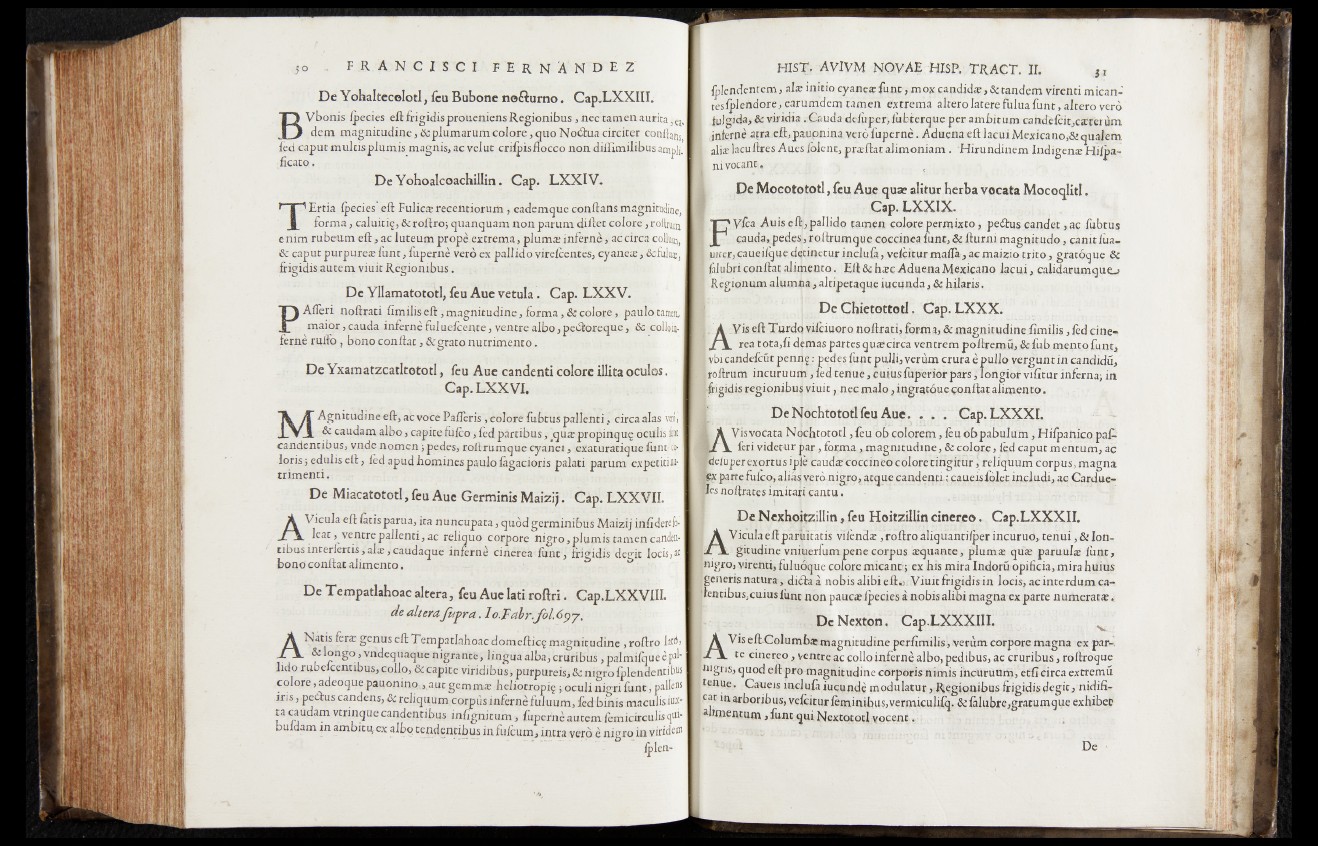 30 FRANCISCI FERNANDEZ
De Yohaltecolotl, ſeu Bubone noƈturno. Cap.LXXIII.
BVbonis ſpecies eſt frigidis proueniens Regionibus, nec tamen aurita,
dem magnitudine, & plumarum colore, quo Noƈtua circiter conſtans,
ſed caput multis plumis magnis, ac velut criſpis flocco non diſſimilibus ampli-
ficato.
De Yohoalcoachillin. Cap. LXXIV.
TErtia ſpecies eſt Fulicæ recentiorum, eademque conſtans magnitudine,
forma, caluitię, & roſtro; quanquam non parum diſtet colore, roſtrum
enim rubeum eſt, ac luteum propè extrema, plumæ infernè, ac circa collum,
& caput purpureæ ſunt, ſupernè verò ex pallido vireſcentes, cyaneæ, & fuluæ,
frigidis autem viuit Regionibus.
De Yllamatototl, ſeu Aue vetula. Cap. LXXV.
PAſſeri noſtrati ſimilis eſt, magnitudine, forma, & colore, paulo tamen
maior, cauda infernè fulueſcente, ventre albo, peƈtoreque, & collo in-
fernè ruffo, bono conſtat, & grato nutrimento.
De Yxamatzcatltototl, ſeu Aue candenti colore illita oculos.
Cap. LXXVI.
MAgnitudine eſt, ac voce Paſſeris, colore ſubtus pallenti, circa alas
& caudam albo, capite fuſco, ſed partibus, quæ propinquę oculis
candentibus, vnde nomen; pedes, roſtrumque cyanei, exaturatique ſunt co-
loris; edulis eſt, ſed apud homines paulo ſagacioris palati parum expetiti nu-
trimenti.
De Miacatototl, ſeu Aue Germinis Maizij. Cap. LXXVII.
AVicula eſt ſatis parua, ita nuncupata, quòd germinibus Maizij inſidere ſo-
leat, ventre pallenti, ac reliquo corpore nigro, plumis tamen canden-
tibus interſertis, alæ, caudaque infernè cinerea ſunt, frigidis degit locis, ac
bono conſtat alimento.
De Tempatlahoac altera, ſeu Aue lati roſtri. Cap.LXXVIII.
de altera ſupra. Io.Fabr.fol.697.
ANatis feræ genus eſt Tempatlahoac domeſticę magnitudine, roſtro lato,
& longo, vndequaque nigrante, lingua alba, cruribus, palmiſque è pal-
lido rubeſcentibus, collo, & capite viridibus, purpureis, & nigro ſplendentibus
colore, adeoque pauonino, aut gemmæ heliotropię; oculi nigri ſunt, pallens
iris, peƈtus candens, & reliquum corpùs infernè fuluum, ſed binis maculis iux-
ta caudam vtrinque candentibus inſignitum, ſupernè autem ſemicirculis qui-
buſdam in ambitu, ex albo tendentibus in fuſcum, intra verò è nigro in viridem
ſplen-
HIST. AVIVM NOVAE HISP. TRACT. II. 31
ſplendentem, alæ initio cyaneæ ſunt, mox candidæ, & tandem virenti mican-
tes ſplendore, earumdem tamen extrema altero latere fulua ſunt, altero verò
fulgida, & viridia. Cauda deſuper, ſubterque per ambitum candeſcit, cæterùm
infernè atra eſt, pauonina verò ſupernè. Aduena eſt lacui Mexicano, & qualem
aliæ lacuſtres Aues ſolent, præſtat alimoniam. Hirundinem Indigenæ Hiſpa-
ni vocant.
De Mocotototl, ſeu Aue quæ alitur herba vocata Mocoqlitl.
Cap. LXXIX.
FVſca Auis eſt, pallido tamen colore permixto, peƈtus candet, ac ſubtus
cauda, pedes, roſtrumque coccinea ſunt, & ſturni magnitudo, canit ſua-
uiter, caueiſque detinetur incluſa, veſcitur maſſa, ac maizio trito, gratóque &
ſalubri conſtat alimento. Eſt & hæc Aduena Mexicano lacui, calidarumque
Regionum alumna, altipetaque iucunda, & hilaris.
De Chictototl. Cap. LXXX.
AVis eſt Turdo viſciuoro noſtrati, forma, & magnitudine ſimilis, ſed cine-
rea tota, ſi demas partes quæ circa ventrem poſtremū, & ſub mento ſunt,
vbi candeſcūt pennę: pedes ſunt pulli, verùm crura è pullo vergunt in candidū,
roſtrum incuruum, ſed tenue, cuius ſuperior pars, longior viſitur inferna; in
frigidis regionibus viuit, nec malo, ingratóue conſtat alimento.
De Nochtototl ſeu Aue. . . . Cap. LXXXI.
AVis vocata Nochtototl, ſeu ob colorem, ſeu ob pabulum, Hiſpanico paſ-
ſeri videtur par, forma, magnitudine, & colore, ſed caput mentum, ac
deſuper exortus ipſe caudæ coccineo colore tingitur, reliquum corpus, magna
ex parte fuſco, aliàs verò nigro, atque candenti: caueis ſolet includi, ac Cardue-
les noſtrates imitari cantu.
De Nexhoitzillin, ſeu Hoitzillin cinereo. Cap.LXXXII.
AVicula eſt paruitatis viſendæ, roſtro aliquantiſper incuruo, tenui, & lon-
gitudine vniuerſum pene corpus æquante, plumæ quæ paruulæ ſunt,
nigro, virenti, fuluóque colore micant; ex his mira Indorū opificia, mira huius
generis natura, diƈta à nobis alibi eſt. Viuit frigidis in locis, ac interdum ca-
lentibus, cuius ſunt non paucæ ſpecies à nobis alibi magna ex parte numeratæ.
De Nexton. Cap.LXXXIII.
AVis eſt Columbæ magnitudine perſimilis, verùm corpore magna ex par-
te cinereo, ventre ac collo infernè albo, pedibus, ac cruribus, roſtroque
nigris, quod eſt pro magnitudine corporis nimis incuruum, etſi circa extremū
tenue. Caueis incluſa iucundè modulatur, Regionibus frigidis degit, nidifi-
cat in arboribus, veſcitur ſeminibus, vermiculiſq. & ſalubre, gratumque exhibet
alimentum, ſunt qui Nextototl vocent.
De